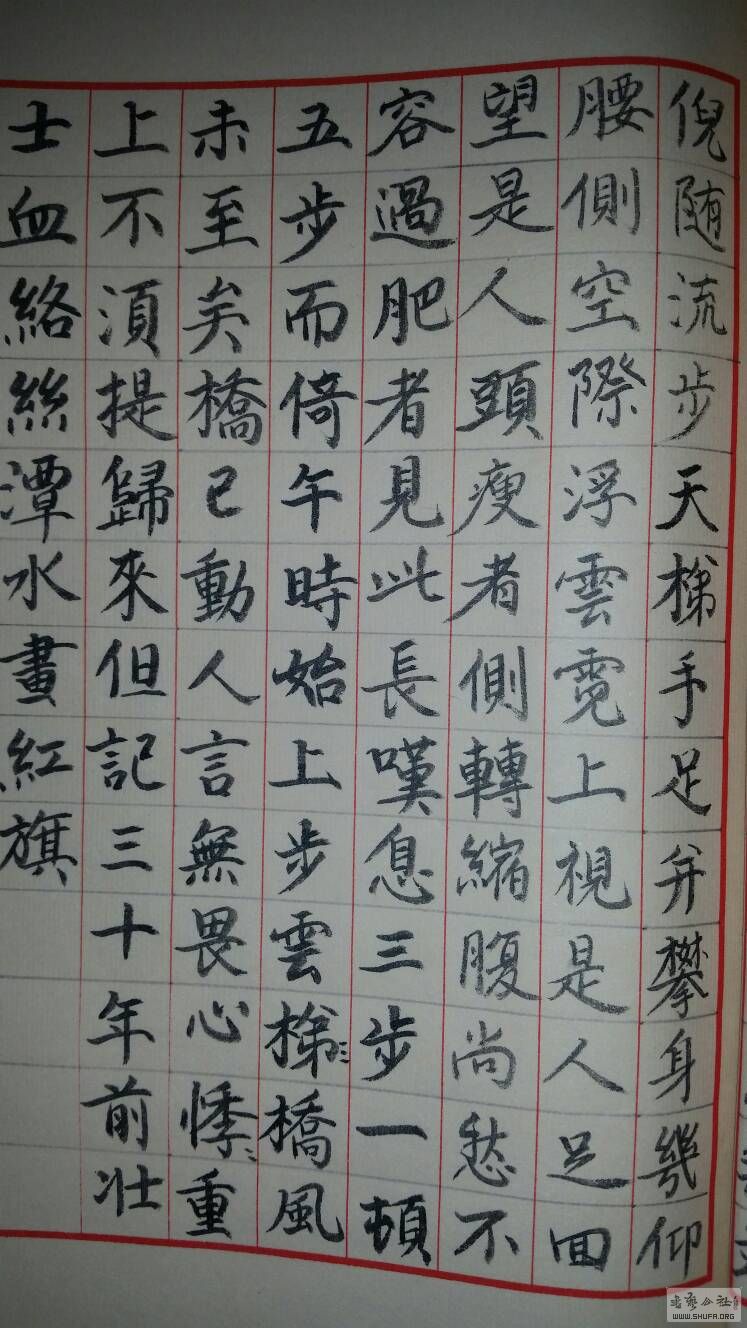 倪随流步天梯手足并攀身幾仰
腰側空際浮雲霓上視是人足回
望是人頭瘦者側轉縮腹尚愁不
容過肥者見此長嘆息三步一頓
五步而倚午時始上步雲梯:橋風
未至矣橋已動人言無畏心悸:重
上不須提歸來但記三十年前壯
士血絡絲潭水畫紅旗
书艺公社
WWW.SHUFA.ORG